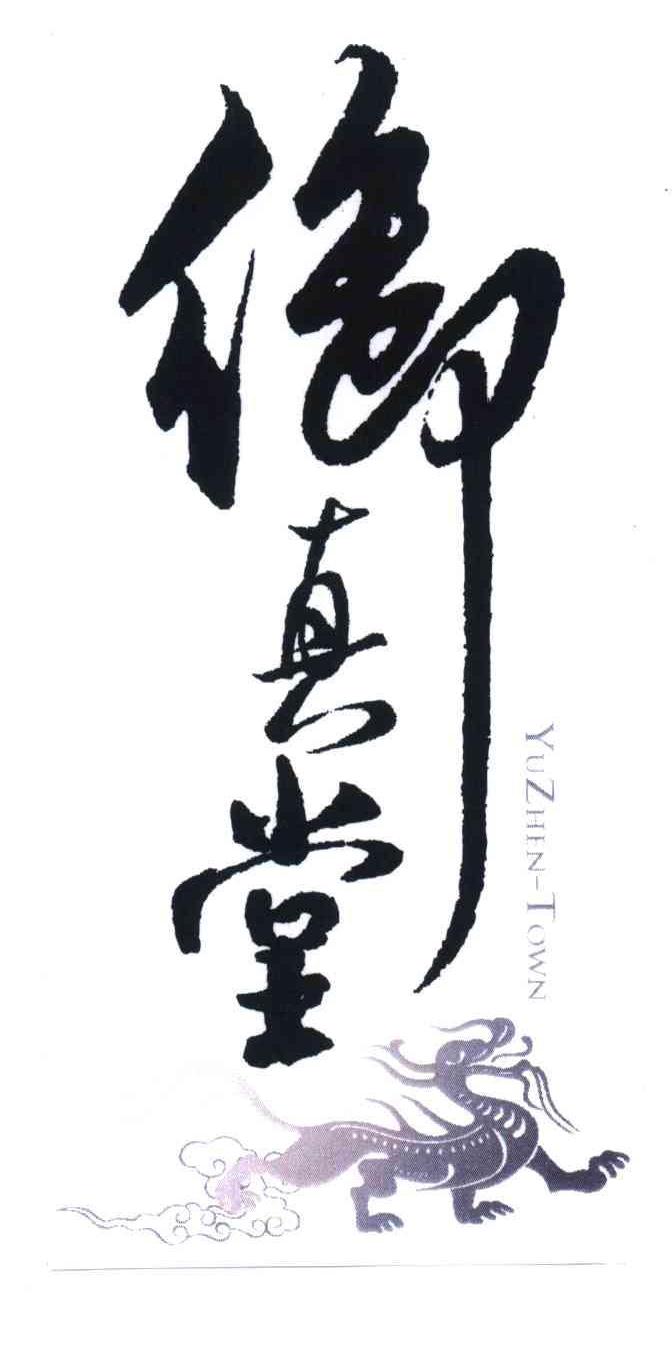 御真堂
YuZhen-Town